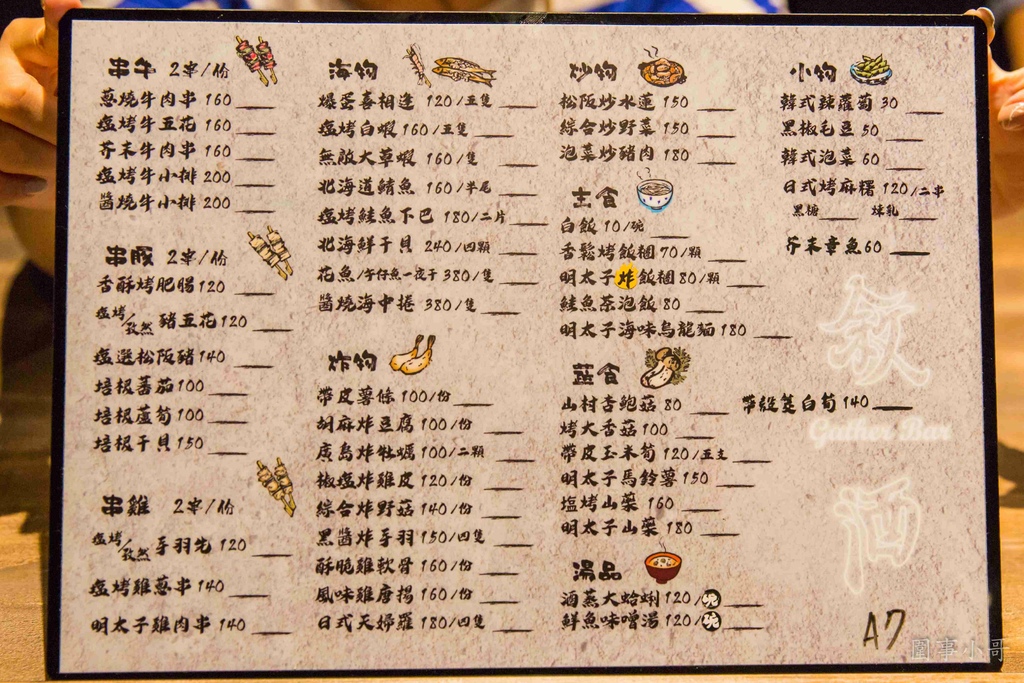 串牛 2串/份
蔥燒牛肉串 160
塩烤牛五花 160
芥末牛肉串 160
塩烤牛小排 200
醬燒牛小排 200
串豚 2串/份
香酥烤肥腸 120
塩烤/孜然 豬五花 120
塩選松阪豬 140
培根蕃茄 100
培根蘆筍 100
培根干貝 150
串雞 2串/份
塩烤/孜然 手羽先 120
塩烤雞蔥串 140
明太子雞肉串 140
海物
爆蛋喜相逢 120/五隻
塩烤白蝦 160/五隻
無敵大草蝦 160/隻
北海道鯖魚 160/半尾
塩烤鮭魚下巴 180/二片
北海鮮干貝 240/四顆
花魚/午仔魚一夜干 380/隻
醬燒海中捲 380/隻
炸物
帶皮薯條 100/份
胡麻炸豆腐 100/份
廣島炸牡蠣 100/二顆
椒塩炸雞皮 120/份
綜合炸野菇 140/份
黑醬炸手羽 150/四隻
酥脆雞軟骨 160/份
風味雞唐揚 160/份
日式天婦羅 180/四隻
炒物
松阪炒水蓮 150
綜合炒野菜 150
泡菜炒豬肉 180
主食
白飯 10/碗
香鬆烤飯糰 70/顆
明太子炸飯糰 80/顆
鮭魚茶泡飯 80
明太子海味烏龍麵 180
蔬食
山村杏鮑菇 80
烤大香菇 100
帶皮玉米筍 120/五支
明太子馬鈴薯 150
塩烤山藥 160
明太子山藥 180
湯品
酒蒸大蛤蜊 120/碗
鮮魚味噌湯 120/碗
小物
韓式辣蘿蔔 30
黑椒毛豆 50
韓式泡菜 60
日式烤麻糬 120/二串
黑糖 煉乳
芥末章魚 60
帶殼筊白筍 140
A7
圍事小哥